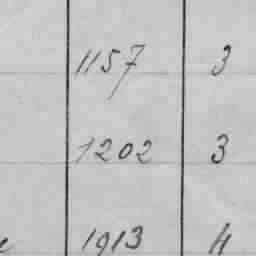 1157 3
1202 3
1913 4